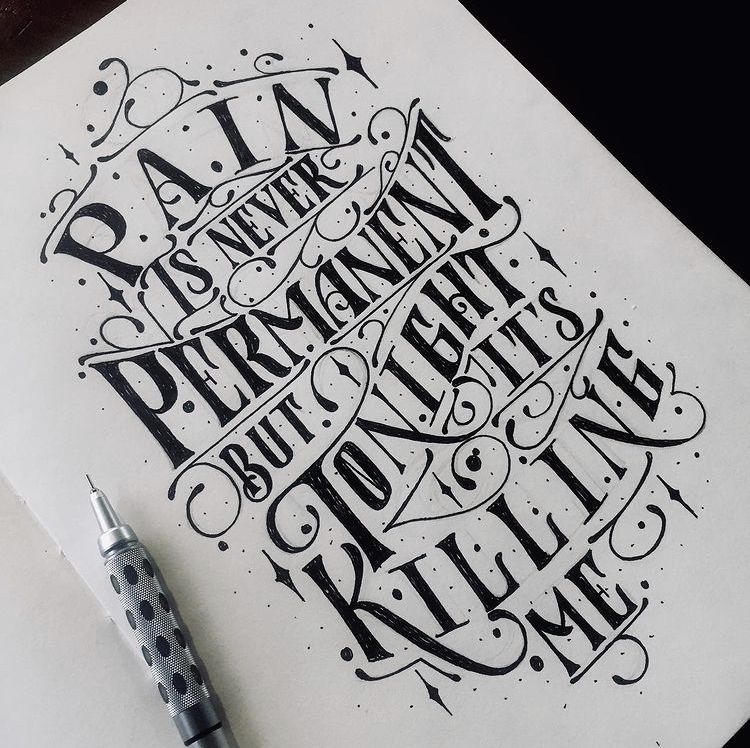 PAIN
IS NEVER
PERMANENT
BUT TONIGHT
IT'S
KILLING
ME